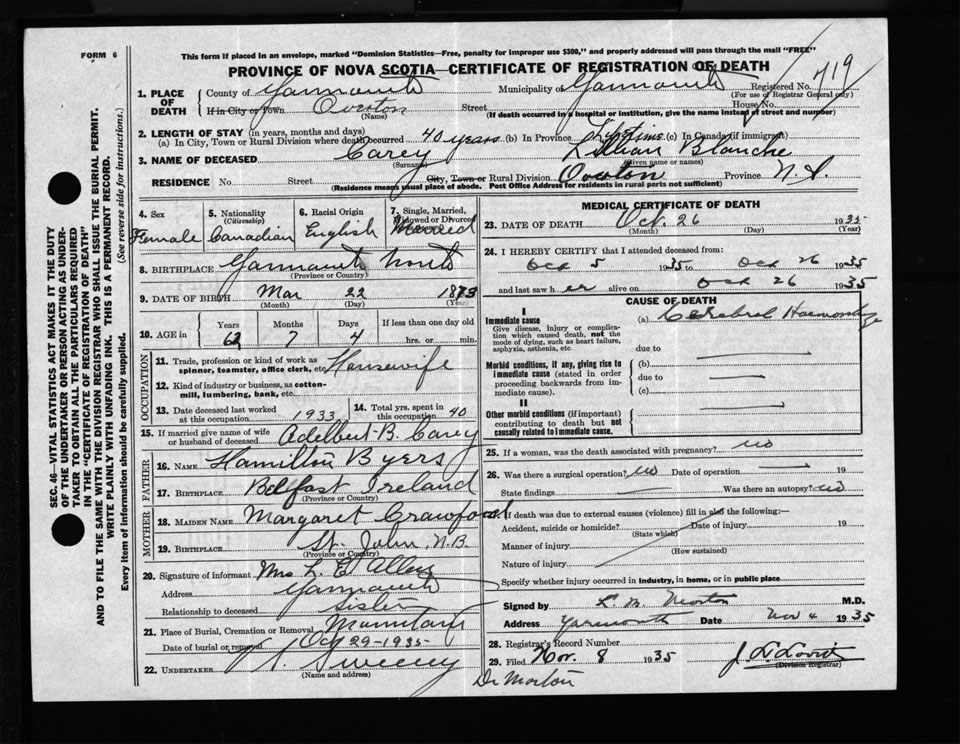 FORM 6
This form if placed in an envelope, marked "Dominion Statistics—Free, penalty for improper use $300," and properly addressed will pass through the mail "FREE"
PROVINCE OF NOVA SCOTIA—CERTIFICATE OF REGISTRATION OF DEATH
719
1. PLACE OF DEATH County of Yarmouth Municipality of Yarmouth Registered No.
(For use of Registrar General only)
If in City or Town Overton Street House No.
(Name) (If death occurred in a hospital or institution, give the name instead of street and number)
2. LENGTH OF STAY (in years, months and days)
(a) In City, Town or Rural Division where death occurred 40 years (b) In Province Lifetime (c) In Canada (if immigrant)
3. NAME OF DECEASED Carey Lillian Blanche
(Surname) (Given name or names)
RESIDENCE No. Street City, Town or Rural Division Overton Province N.S.
(Residence means usual place of abode. Post Office Address for residents in rural parts not sufficient)
4. Sex Female
5. Nationality (Citizenship) Canadian
6. Racial Origin English
7. Single, Married, Widowed or Divorced Married
8. BIRTHPLACE Yarmouth North
(Province or Country)
9. DATE OF BIRTH Mar 22 1873
(Month) (Day) (Year)
10. AGE in Years Months Days If less than one day old
62 7 4 hrs. or min.
OCCUPATION
11. Trade, profession or kind of work as spinner, teamster, office clerk, etc. Housewife
12. Kind of industry or business, as cotton-mill, lumbering, bank, etc.
13. Date deceased last worked at this occupation 1933
14. Total yrs. spent in this occupation 40
15. If married give name of wife or husband of deceased Adelbert B. Carey
FATHER
16. NAME Hamilton Byers
17. BIRTHPLACE Belfast Ireland
(Province or Country)
MOTHER
18. MAIDEN NAME Margaret Crawford
19. BIRTHPLACE St. John, N.B.
(Province or Country)
20. Signature of informant Mrs L. E. Allen
Address Yarmouth
Relationship to deceased sister
21. Place of Burial, Cremation or Removal Mountain
Date of burial or removal Oct 29-1935
22. UNDERTAKER Sweeny
(Name and address)
MEDICAL CERTIFICATE OF DEATH
23. DATE OF DEATH Oct. 26 1935
(Month) (Day) (Year)
24. I HEREBY CERTIFY that I attended deceased from:
Oct 5 1935 to Oct 26 1935
and last saw her alive on Oct 26 1935
CAUSE OF DEATH
I
Immediate cause
Give disease, injury or complication which caused death, not the mode of dying, such as heart failure, asphyxia, asthenia, etc.
(a) Cerebral Haemorrhage
due to
Morbid conditions, if any, giving rise to immediate cause (stated in order proceeding backwards from immediate cause).
(b)
due to
(c)
II
Other morbid conditions (if important) contributing to death but not causally related to immediate cause.
25. If a woman, was the death associated with pregnancy? no
26. Was there a surgical operation? no Date of operation 19
State findings Was there an autopsy? no
If death was due to external causes (violence) fill in also the following:—
Accident, suicide or homicide? Date of injury 19
(State which)
Manner of injury
(How sustained)
Nature of injury
Specify whether injury occurred in industry, in home, or in public place
Signed by L. M. Morton M.D.
Address Yarmouth Date Nov 4 1935
28. Registrar's Record Number
29. Filed Nov. 8 1935
(Division Registrar)
Dr Morton
SEC. 46—VITAL STATISTICS ACT MAKES IT THE DUTY
OF THE UNDERTAKER OR PERSON ACTING AS UNDER-
TAKER TO OBTAIN ALL THE PARTICULARS REQUIRED
IN THE "CERTIFICATE OF REGISTRATION OF DEATH"
AND TO FILE THE SAME WITH THE DIVISION REGISTRAR WHO SHALL ISSUE THE BURIAL PERMIT.
WRITE PLAINLY WITH UNFADING INK. THIS IS A PERMANENT RECORD.
Every item of information should be carefully supplied. (See reverse side for instructions.)